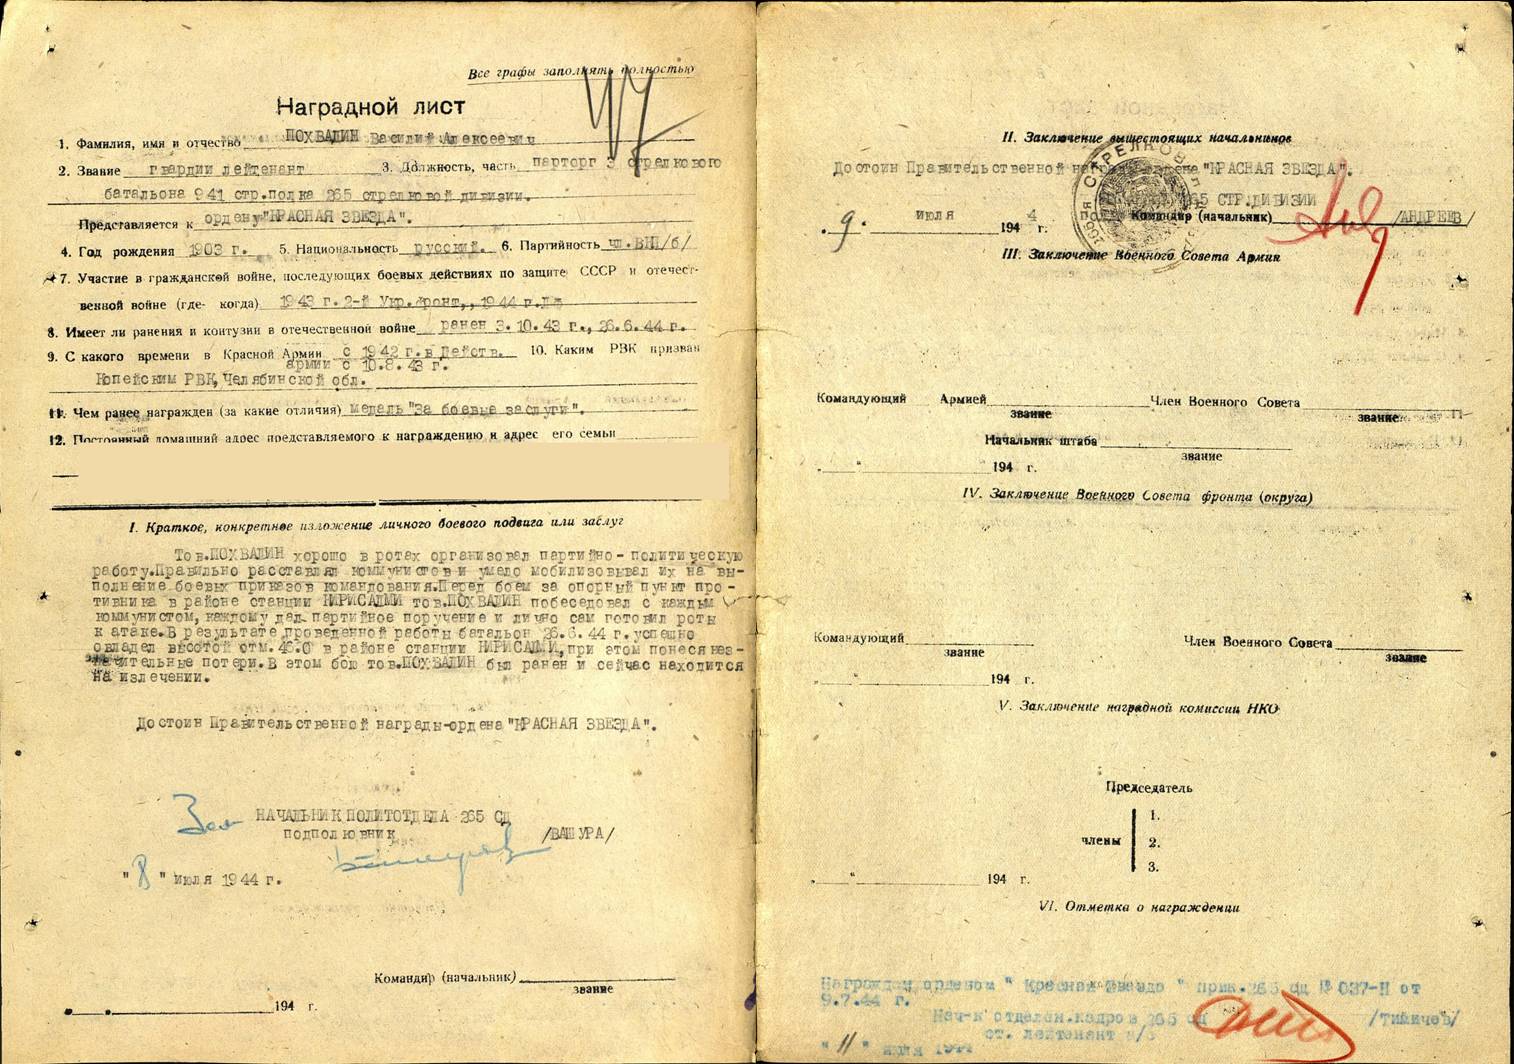 Все графы заполнять полностью
Наградной лист
1. Фамилия, имя и отчество ПОХВАЛИН Василий Алексеевич
2. Звание гвардии лейтенант 3. Должность, часть парторг 3 стрелкового
батальона 941 стр.полка 265 стрелковой дивизии.
Представляется к ордену "КРАСНАЯ ЗВЕЗДА".
4. Год рождения 1903 г. 5. Национальность русский. 6. Партийность чл.ВКП/б/
7. Участие в гражданской войне, последующих боевых действиях по защите СССР и отечест-
венной войне (где- когда) 1943 г. 2-й Укр.фронт,, 1944 г.
8. Имеет ли ранения и контузии в отечественной войне ранен 3.10.43 г., 26.6.44 г.
9. С какого времени в Красной Армии с 1942 г. в Действ. 10. Каким РВК призван
армии с 10.8.43 г.
Копейским РВК, Челябинской обл.
11. Чем ранее награжден (за какие отличия) медаль "За боевые заслуги".
12. Постоянный домашний адрес представляемого к награждению и адрес его семьи
I. Краткое, конкретное изложение личного боевого подвига или заслуг
Тов.ПОХВАЛИН хорошо в ротах организовал партийно-политическую
работу.Правильно расставлял коммунистов и умело мобилизовывал их на вы-
полнение боевых приказов командования.Перед боем за опорный пункт про-
тивника в районе станции КИРИСАЛМИ тов.ПОХВАЛИН побеседовал с каждым
коммунистом, каждому дал партийное поручение и лично сам готовил роты
к атаке.В результате проведенной работы батальон 26.6.44 г.успешно
овладел высотой отм.46.0 в районе станции КИРИСАЛМИ,при этом понеся нез-
начительные потери.В этом бою тов.ПОХВАЛИН был ранен и сейчас находится
на излечении.
Достоин Правительственной награды-ордена "КРАСНАЯ ЗВЕЗДА".
Зам НАЧАЛЬНИК ПОЛИТОТДЕЛА 265 СД
подполковник /ВАШУРА/
"8" июля 1944 г.
Командир (начальник)
звание
194 г.
II. Заключение вышестоящих начальников
Достоин Правительственной награды ордена "КРАСНАЯ ЗВЕЗДА".
265 СТР.ДИВИЗИИ
9. июля 1944 г. Командир (начальник) /АНДРЕЕВ/
III. Заключение Военного Совета Армии
Командующий Армией Член Военного Совета
звание звание
Начальник штаба
звание
" " 194 г.
IV. Заключение Военного Совета фронта (округа)
Командующий Член Военного Совета
звание звание
" " 194 г.
V. Заключение наградной комиссии НКО
Председатель
члены
1.
2.
3.
" 194 г.
VI. Отметка о награждении
Награжден орденом " Красная Звезда " прик.265 сд № 037-Н от
9.7.44 г.
Нач-к отделен.кадров 265 сд
ст. лейтенант
"11" июля 1944